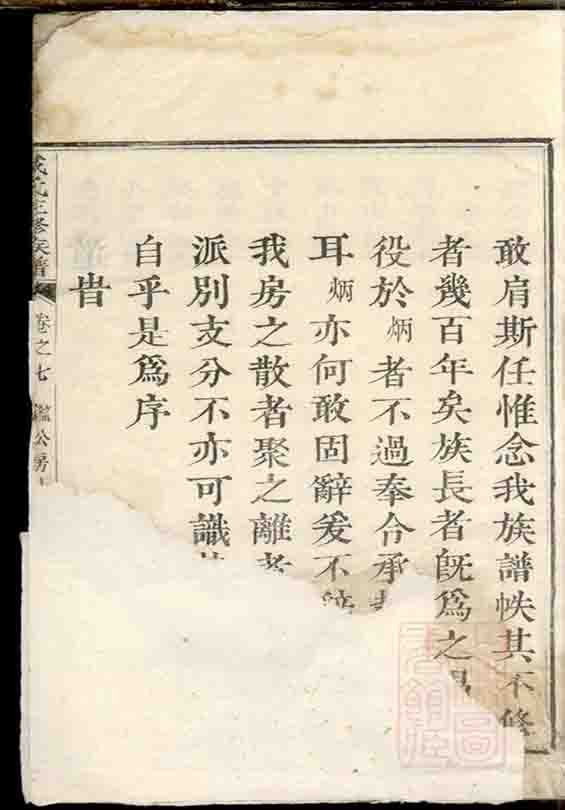 敢肩斯任惟念我族譜帙其不修
者幾百年矣族長者既爲之
役於炳者不過奉令承
耳炳亦何敢固辭爰不
我房之散者聚之離者
派別支分不亦可識
自乎是爲序
旹
氏三修族譜
卷之七
公房